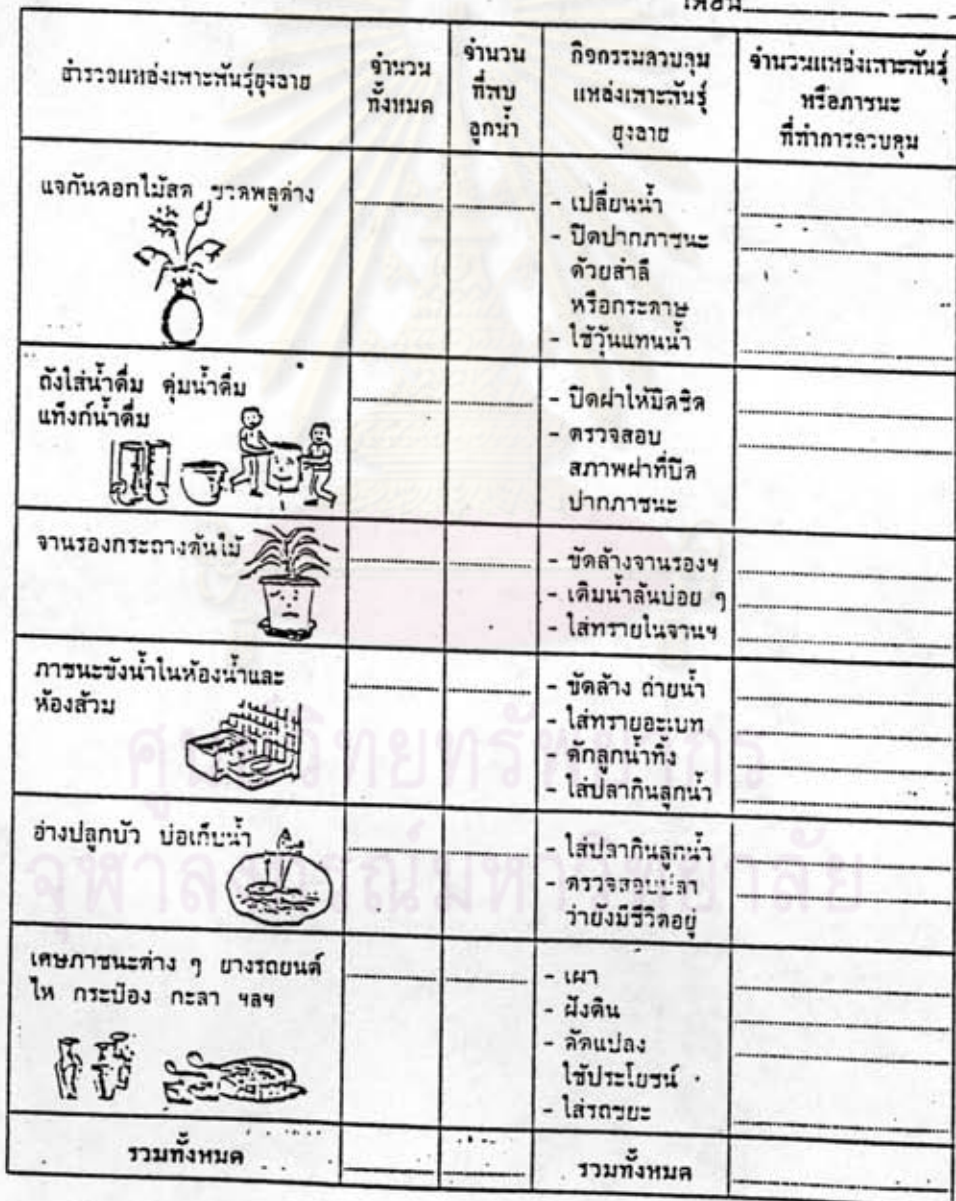 เดือน
สำรวจแหล่งเพาะพันธุ์ยุงลาย
จำนวน
ทั้งหมด
จำนวน
ที่พบ
ลูกน้ำ
กิจกรรมควบคุม
แหล่งเพาะพันธุ์
ยุงลาย
จำนวนแหล่งเพาะพันธุ์
หรือภาชนะ
ที่ทำการควบคุม
แจกันดอกไม้สด ขวดพลูด่าง
- เปลี่ยนน้ำ
- ปิดปากภาชนะ
ด้วยสำลี
หรือกระดาษ
- ใช้วุ้นแทนน้ำ
ถังใส่น้ำดื่ม ตุ่มน้ำดื่ม
แท็งก์น้ำดื่ม
- ปิดฝาให้มิดชิด
- ตรวจสอบ
สภาพฝาที่ปิด
ปากภาชนะ
จานรองกระถางต้นไม้
- ขัดล้างจานรองฯ
- เติมน้ำล้นบ่อย ๆ
- ใส่ทรายในจานฯ
ภาชนะขังน้ำในห้องน้ำและ
ห้องส้วม
- ขัดล้าง ถ่ายน้ำ
- ใส่ทรายอะเบท
- ตักลูกน้ำทิ้ง
- ใส่ปลากินลูกน้ำ
อ่างปลูกบัว บ่อเก็บน้ำ
- ใส่ปลากินลูกน้ำ
- ตรวจสอบปลา
ว่ายังมีชีวิตอยู่
เศษภาชนะต่าง ๆ ยางรถยนต์
ไห กระป๋อง กะลา ฯลฯ
- เผา
- ฝังดิน
- ดัดแปลง
ใช้ประโยชน์
- ใส่รถขยะ
รวมทั้งหมด
รวมทั้งหมด
ศูนย์วิทยทรัพยากร
จุฬาลงกรณ์มหาวิทยาลัย